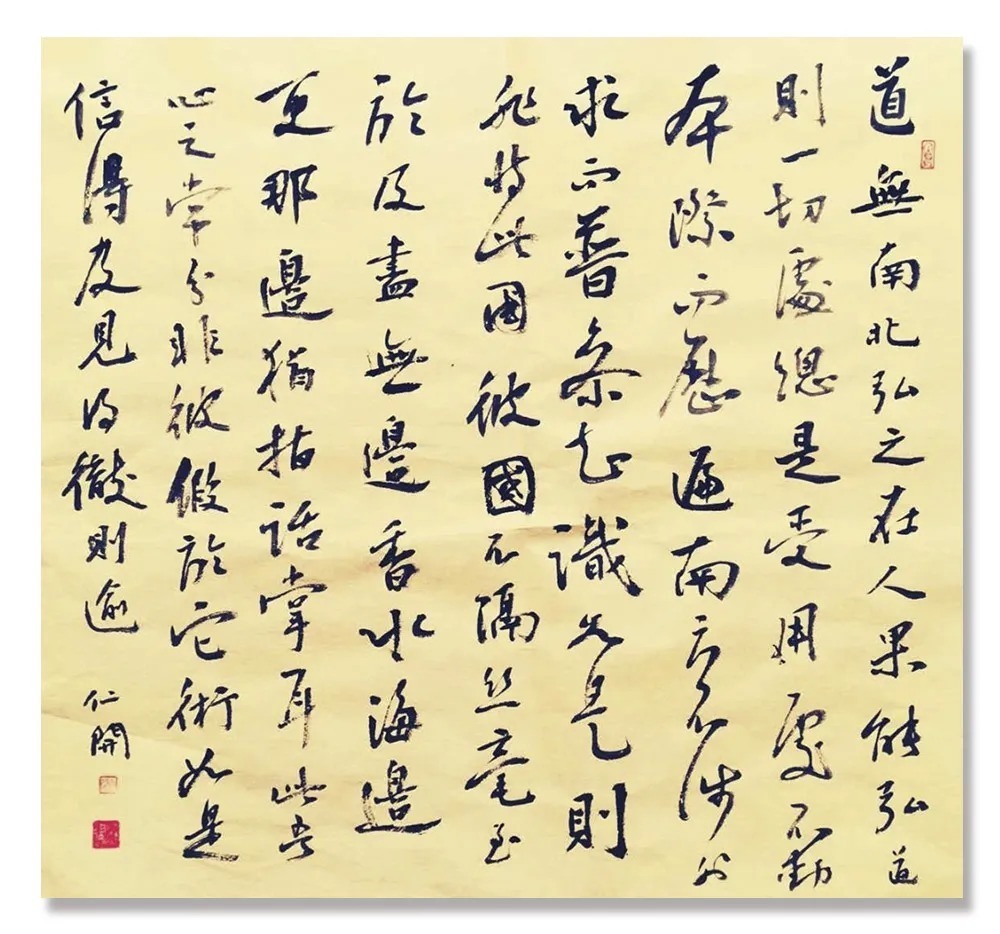 道無南北弘之在人果能弘道
則一切處總是受用處不動
本際而歷遍南方不涉外
求而普叅知識如是則
非特此國彼國不隔絲毫至
於及盡無邊香水海邊
更那邊猶指諸掌耳此吾
心之常分非彼假於它術如是
信得及見得徹則逾
仁開